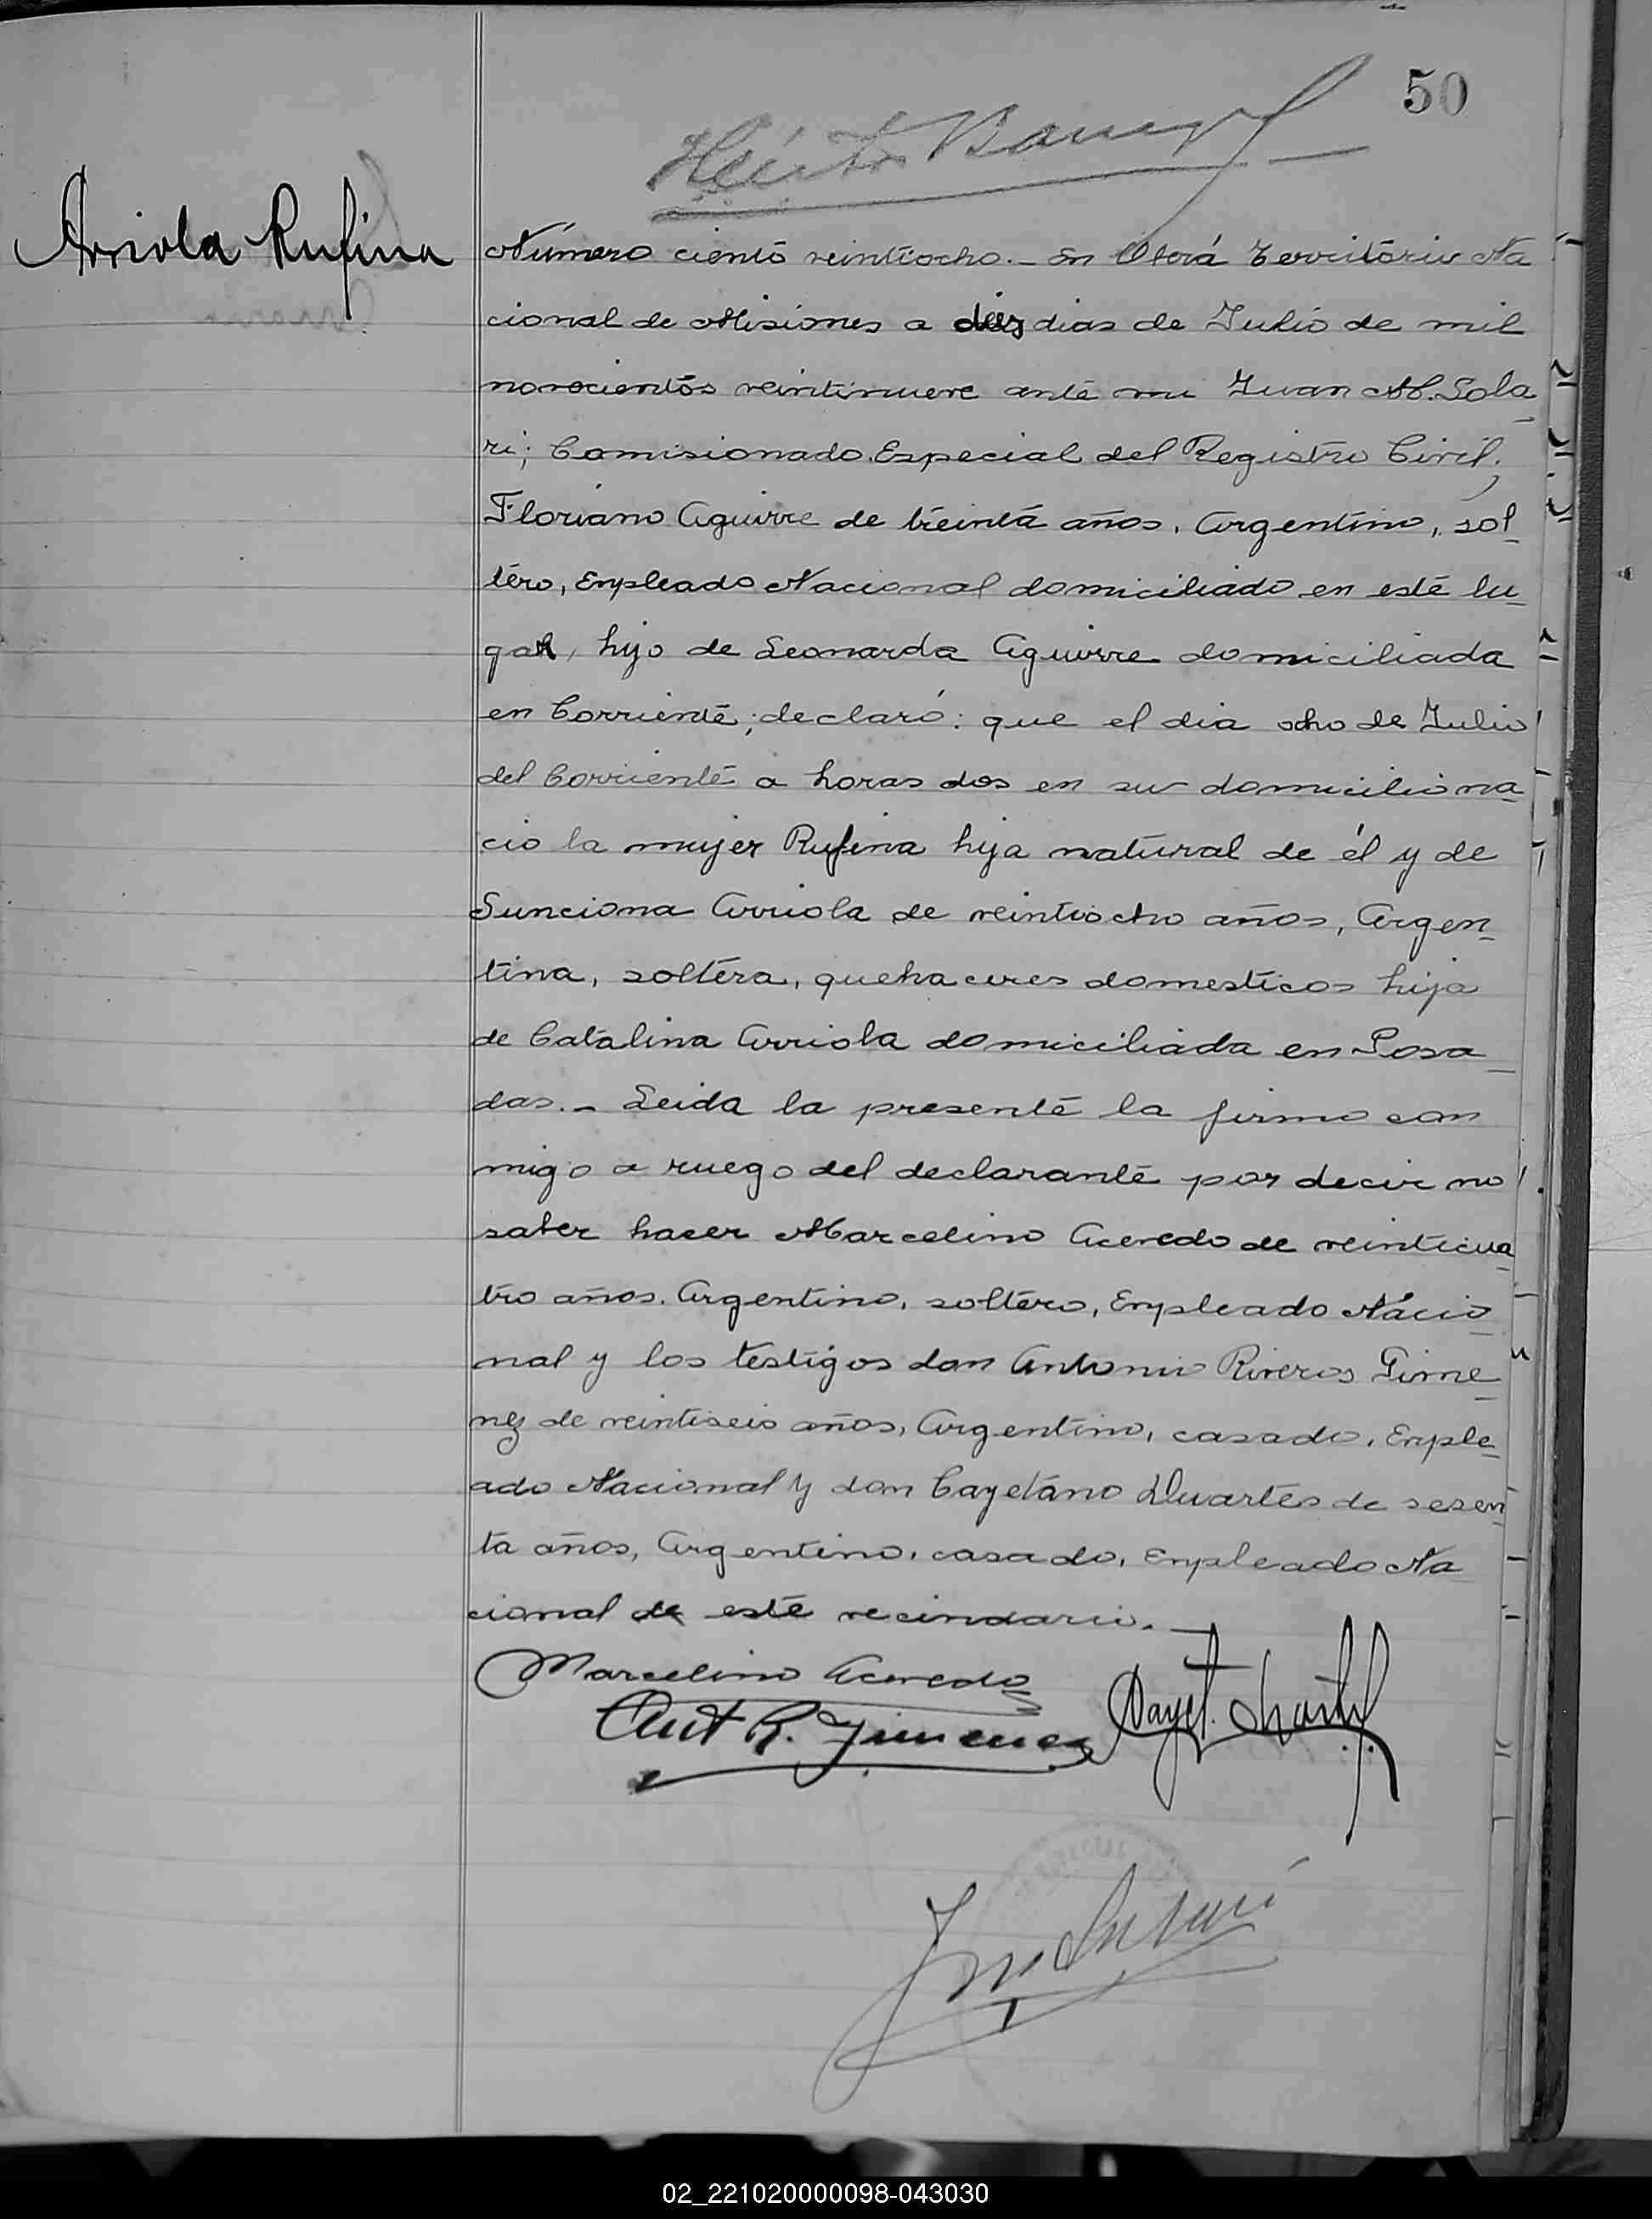 50
Arriola Rufina
Número ciento veintiocho. - En Oberá Territorio Na
cional de Misiones a diez dias de Julio de mil
novecientos veintinueve ante mi Juan M. Sola
ri; Comisionado Especial del Registro Civil;
Floriano Aguirre de treinta años, Argentino, sol
tero, Empleado Nacional domiciliado en este lu
gar, hijo de Leonarda Aguirre domiciliada
en Corriente; declaró: que el dia ocho de Julio
del Corriente a horas dos en su domicilio na
cio la mujer Rufina hija natural de él y de
Sunciona Arriola de veintiocho años, Argen
tina, soltera, quehaceres domesticos hija
de Catalina Arriola domiciliada en Posa
das. - Leida la presente la firmo con
migo a ruego del declarante por decir no
saber hacer Marcelino Acevedo de veinticua
tro años. Argentino, soltero, Empleado Nacio
nal y los testigos don Antonio Riveros Gime
nez de veintiseis años, Argentino, casado, Emple
ado Nacional y don Cayetano Duartes de sesen
ta años, Argentino, casado, Empleado Na
cional de este vecindario.
Marcelino Acevedo
Ant R. Jimenez Cayet. Duarte
JM Solari
02_221020000098-043030